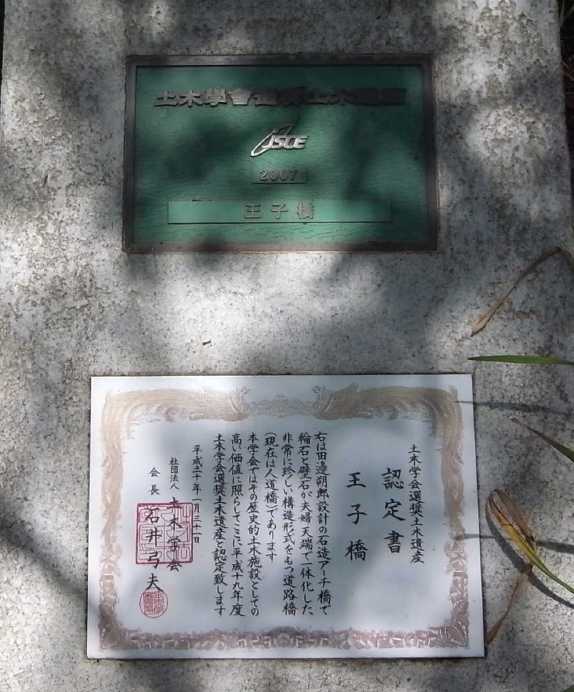 土木學會選奨土木遺産
JSCE
2007
王子橋
土木学会選奨土木遺産
認定書
王子橋
右は田邉朔郎設計の石造アーチ橋で
輪石と壁石が夫婦天端で一体化した、
非常に珍しい構造形式をもつ道路橋
(現在は人道橋)であります
本学会ではその歴史的土木施設としての
高い価値に照らしてここに平成十九年度
土木学会選奨土木遺産と認定致します
社団法人 土木学会
会長 石井弓夫